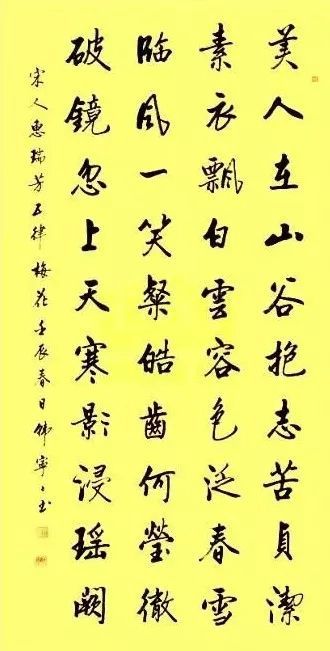 美人在山谷抱志苦貞潔
素衣飄白雲容色泛春雪
臨風一笑粲皓齒何瑩徹
破鏡忽上天寒影浸瑶闕
宋人惠瑞芳五律梅花壬辰春日韩寧寧书